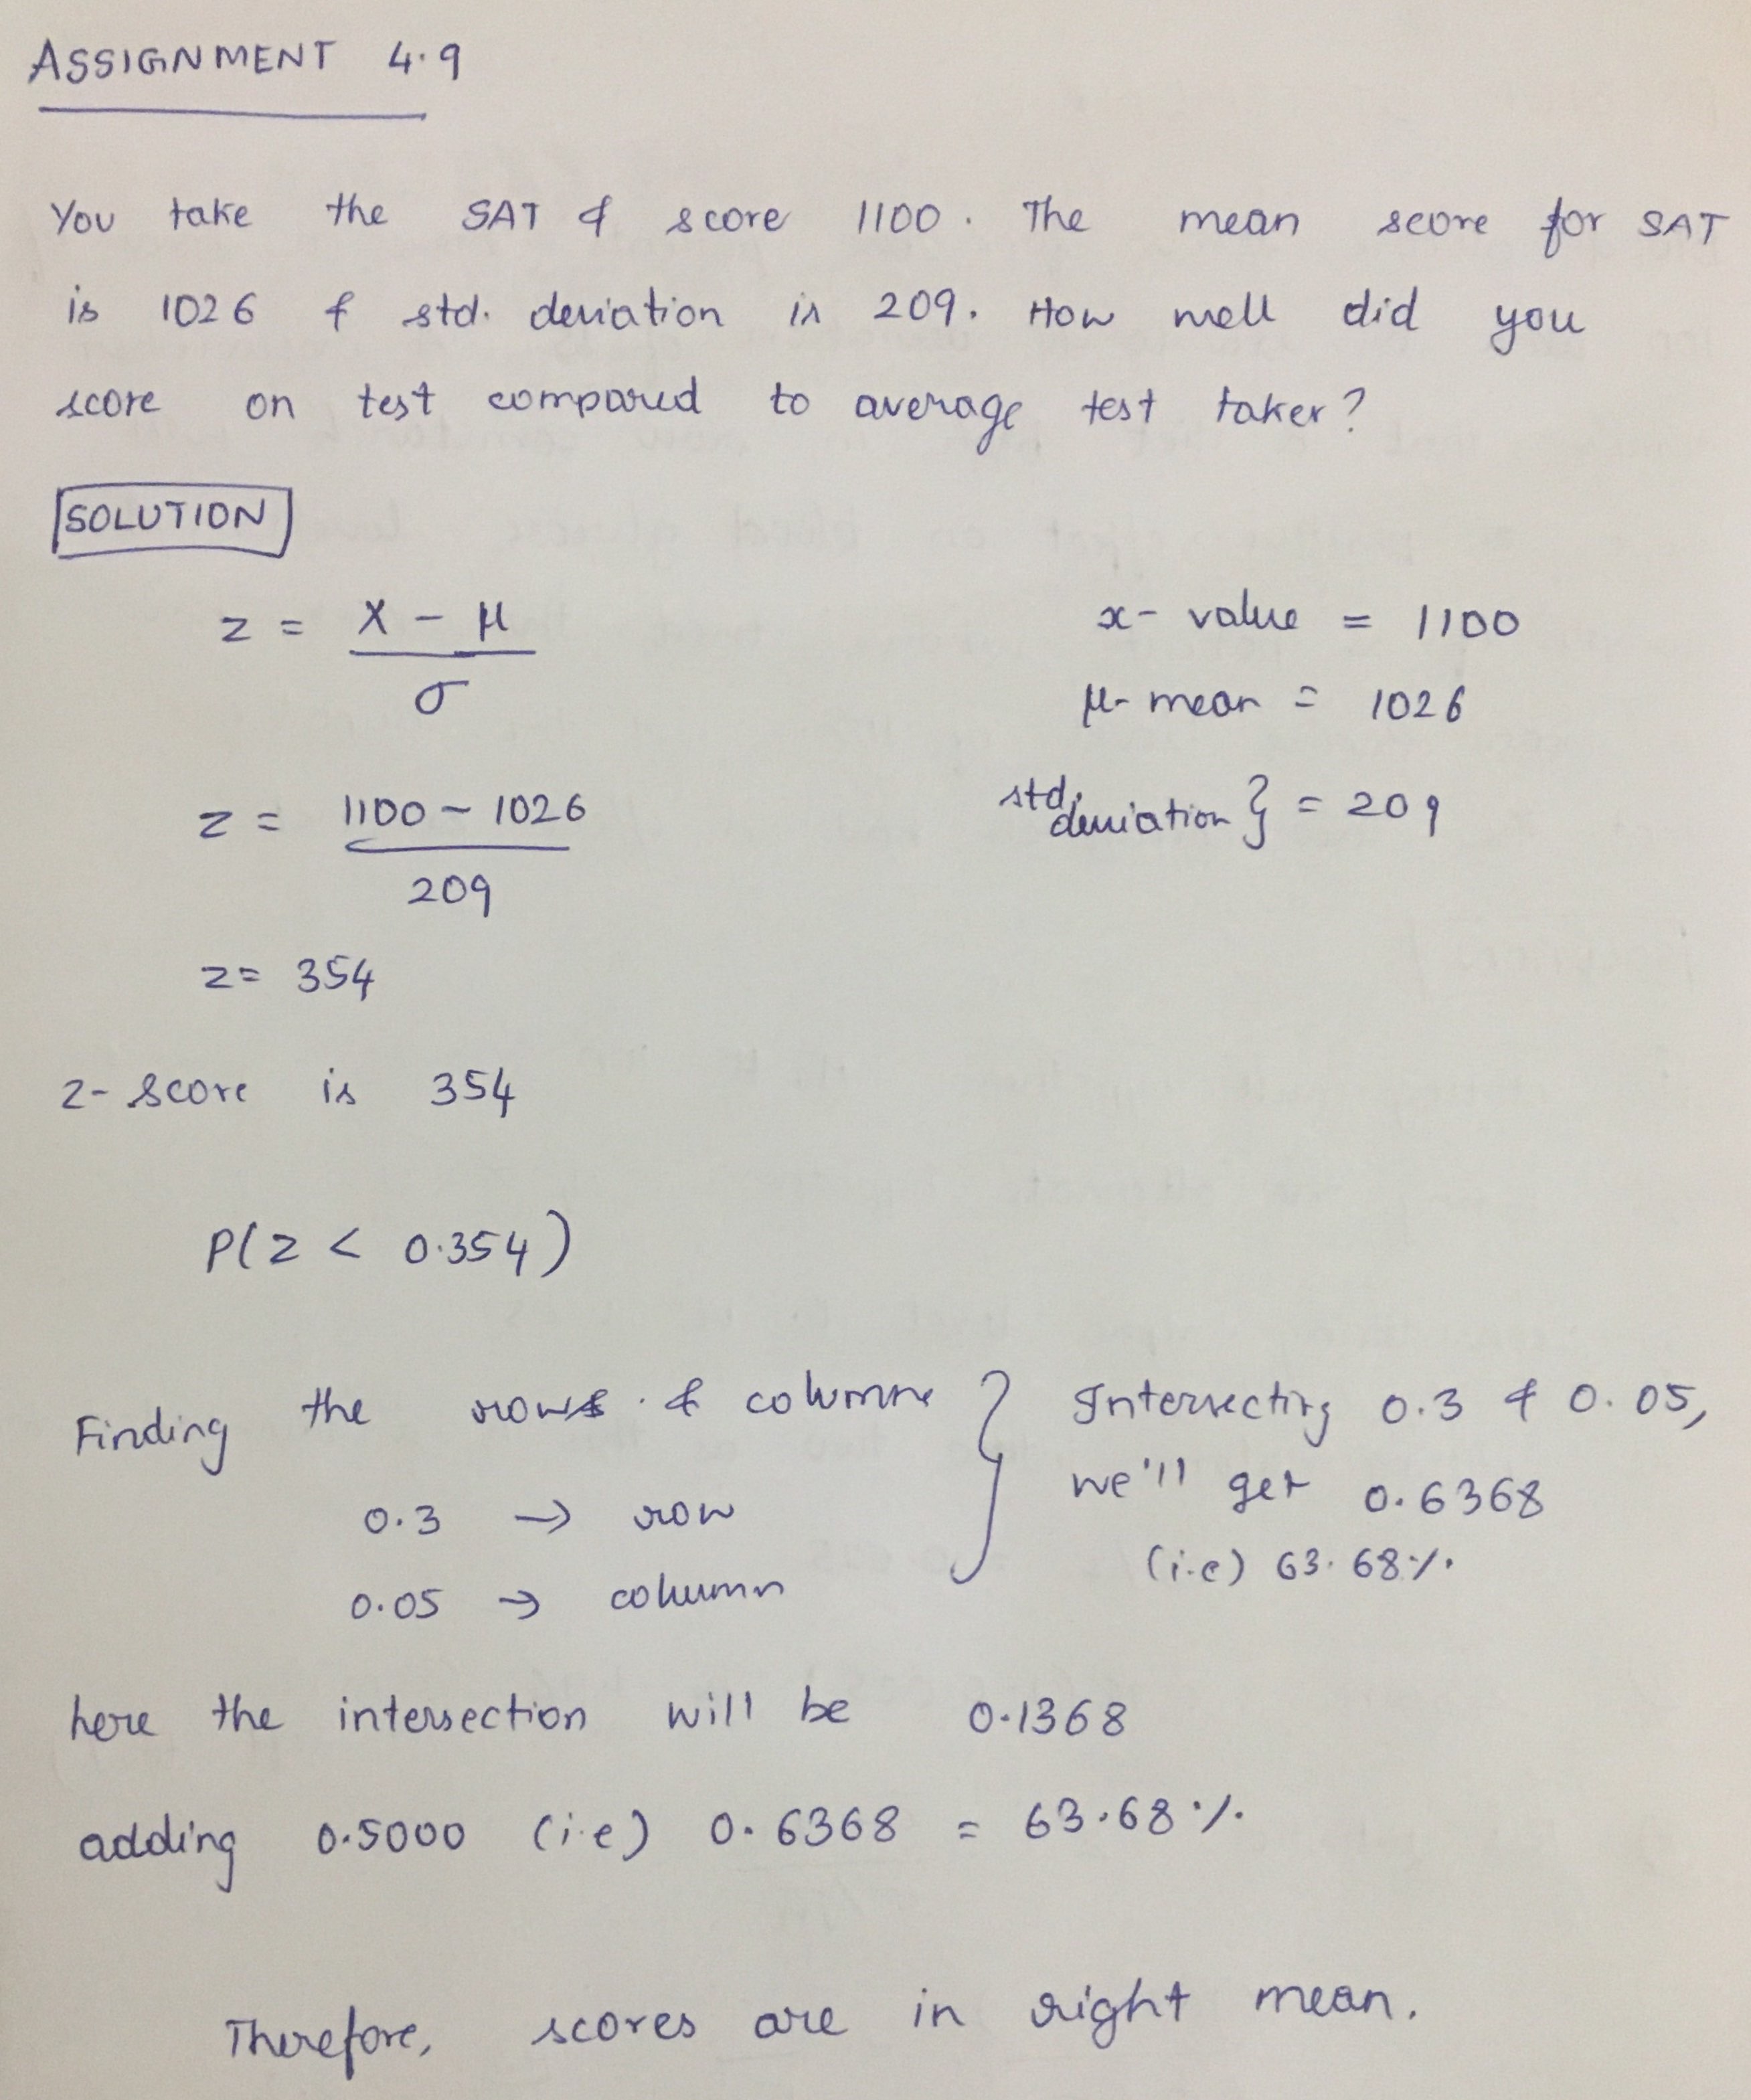 ASSIGNMENT 4.9
You take the SAT & score 1100. The mean score for SAT
is 1026 & std. deviation is 209. How well did you
score on test compared to average test taker?
SOLUTION
z = X - μ
σ
x - value = 1100
μ - mean = 1026
z = 1100 - 1026
209
std. deviation } = 209
z = 354
z - score is 354
P(z < 0.354)
Finding the rows & columns
0.3 → row
0.05 → column
} Intersecting 0.3 & 0.05,
we'll get 0.6368
(i.e) 63.68%.
here the intersection will be 0.1368
adding 0.5000 (i.e) 0.6368 = 63.68%.
Therefore, scores are in right mean.